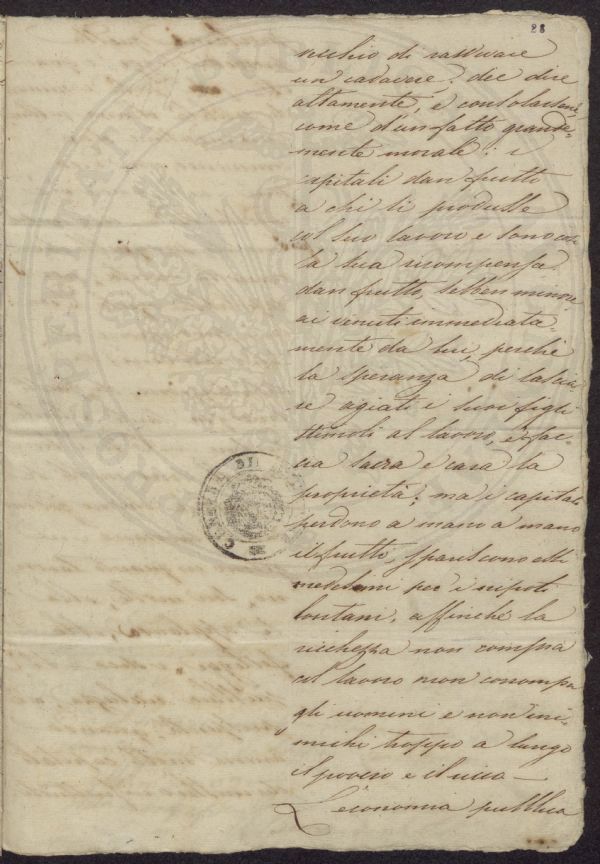 28
nichio di ravvivare
un cadavere, dee dire
altamente, e consolarsene,
come d'un fatto grande-
mente morale: i
capitali dan frutto
a chi li produsse
col suo lavoro e sono così
la sua ricompensa
dan frutto, sebben minore
ai venuti immediata-
mente da lui, perchè
la speranza di lascia-
re agiati i suoi figli
stimoli al lavoro, e fac-
cia sacra e cara la
proprietà; ma i capitali
perdono a mano a mano
il frutto, spariscono essi
medesimi per i nipoti
lontani, affinchè la
ricchezza non compra
col lavoro non corrompa
gli uomini e non ini-
michi troppo a lungo
il povero e il ricco —
L'economia pubblica
PROSPERITATI PUB